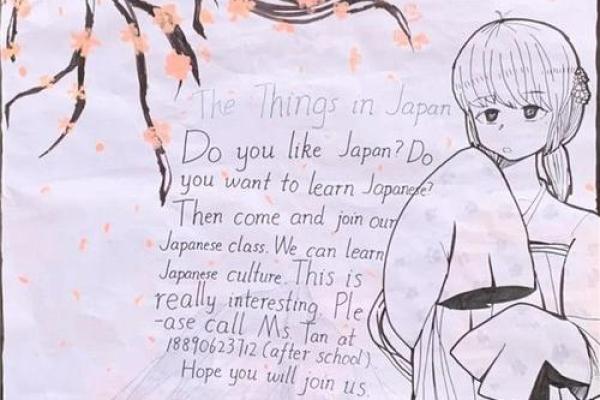 The Things in Japan
Do you like Japan? Do
you want to learn Japanese?
Then come and join our
Japanese class. We can learn
Japanese culture. This is
really interesting. Ple
-ase call Ms. Tan at
18890623712 (after school)
Hope you will join us.